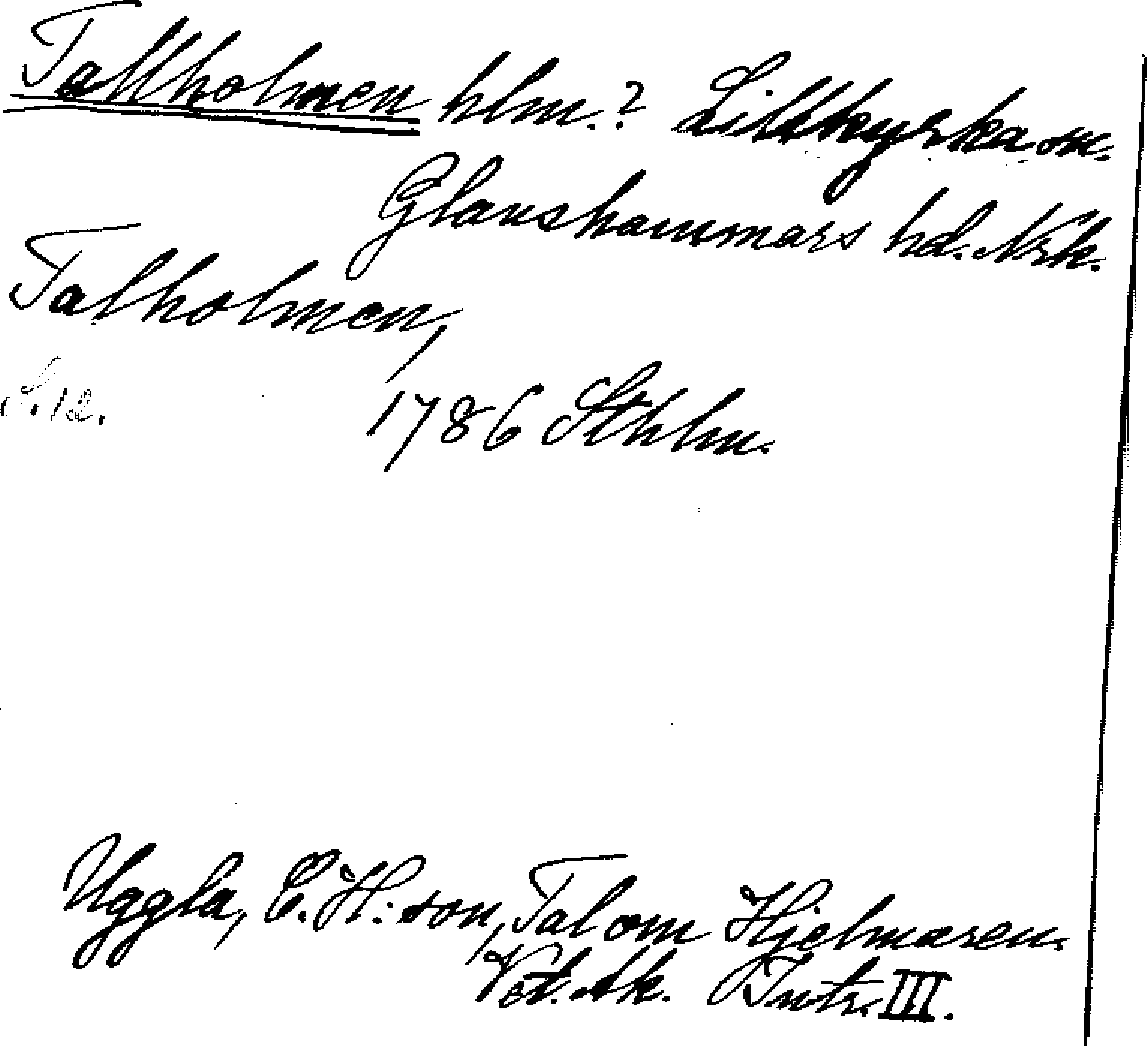 Tallholmen hlm.? Lillkyrka sn.
Glanshammars hd. Nrk.
Talholmen,
S. 12.
1786 Sthlm.
Uggla, C. H:son, Tal om Hjelmaren.
Vet. Ak. Intr. III.